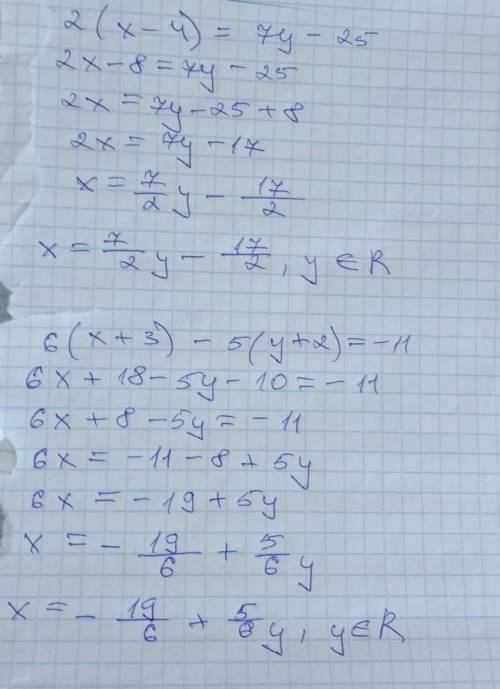 2(x-4) = 7y - 25
2x-8 = 7y - 25
2x = 7y-25+8
2x = 7y-17
x = 7/2 y - 17/2
x = 7/2 y - 17/2, y ∈ R
6(x+3) - 5(y+2) = -11
6x + 18 - 5y - 10 = -11
6x + 8 - 5y = -11
6x = -11 - 8 + 5y
6x = -19 + 5y
x = - 19/6 + 5/6 y
x = - 19/6 + 5/6 y, y ∈ R